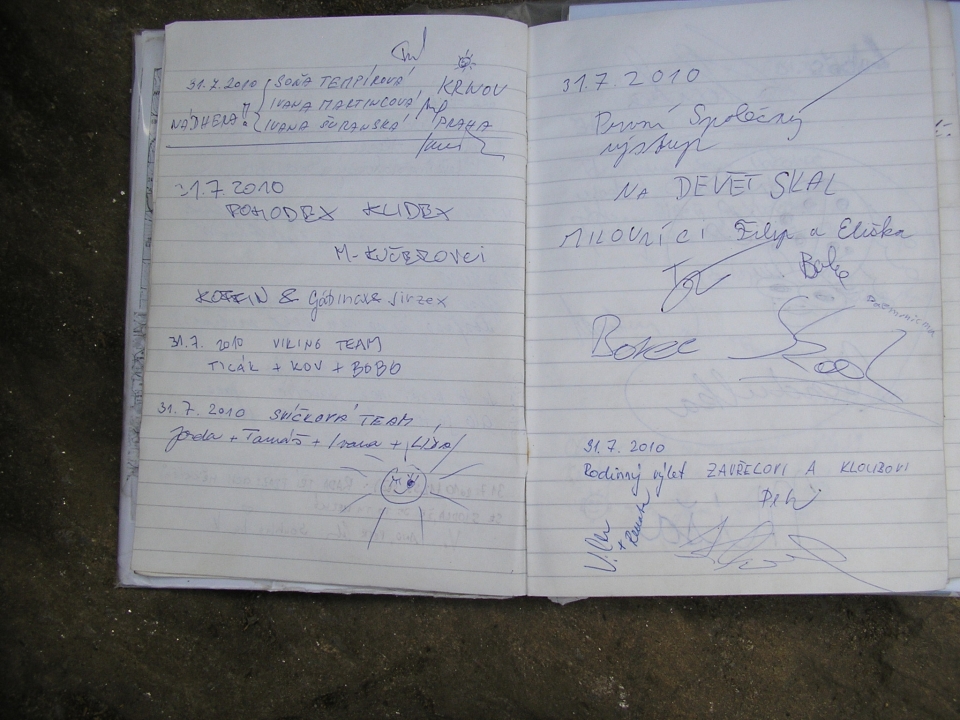 31.7.2010 SOŇA TEMPÍROVÁ
IVANA MARTINCOVÁ
NÁDHERA!! IVANA ŠURANSKÁ
KRNOV
PRAHA
31.7 2010
POHODEX KLIDEX
M-KUČEROVCI
& Gábinaxe Jirzex
31.7. 2010 VIKING TEAM
TICÁK + KOV + BOBO
31.7. 2010 SVÍČKOVÁ TEAM
Jarda + Tomáš + Ivana +
31.7.2010
První Společný
výstup
NA DEVĚT SKAL
MILOVNÍCI Filip a Eliška
31.7.2010
Rodinný výlet ZAVŘELOVI A KLOUBOVI
Petr
+ Renata